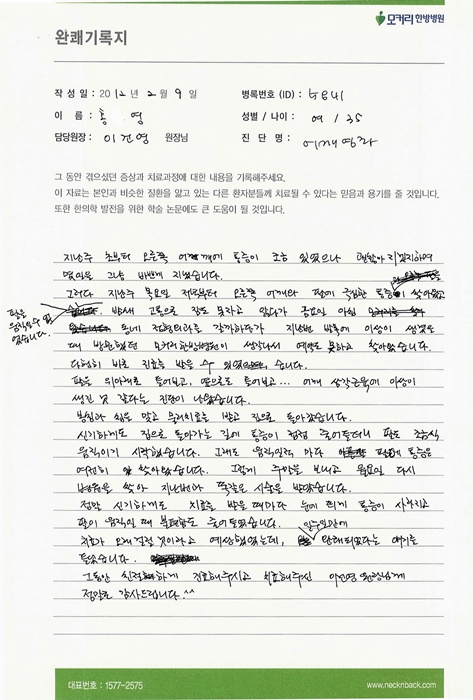 모커리한방병원
완쾌기록지
작 성 일 : 2012년 2월 9일
병록번호 (ID) :
이 름 : 홍 영
성별 / 나이 : 여 / 35
담당원장 : 이진영 원장님
진 단 명 : 어깨염좌
그 동안 겪으셨던 증상과 치료과정에 대한 내용을 기록해주세요.
이 자료는 본인과 비슷한 질환을 앓고 있는 다른 환자분들께 치료될 수 있다는 믿음과 용기를 줄 것입니다.
또한 한의학 발전을 위한 학술 논문에도 큰 도움이 될 것입니다.
지난주 초부터 오른쪽 어깨에 통증이 조금 있었으나 괜찮아 지겠지하며
몇일을 그냥 바쁘게 지냈습니다.
그러다 지난주 목요일 저녁부터 오른쪽 어깨와 팔에 극심한 통증이 찾아왔고
팔을
움직일 수 없
었습니다.
밤새 고통으로 잠도 못자고 있다가 금요일 아침
동네 정형외과를 갈까하다가 지난번 발목에 이상이 생겼을
때 방문했던 모커리한방병원이 생각나서 예약도 못하고 찾아왔습니다.
다행히 바로 진료를 받을 수 있었습니다.
팔을 위아래로 들어보고, 옆으로도 들어보고... 어깨 삼각근육에 이상이
생긴 것 같다는 진단이 나왔습니다.
봉침과 침을 맞고 물리치료를 받고 집으로 돌아왔습니다.
신기하게도 집으로 돌아가는 길에 통증이 점점 줄어들더니 팔도 조금씩
움직이기 시작했습니다. 그래도 움직일때 마다 팔에 통증은
여전히 찾아왔습니다. 그렇게 주말을 보내고 월요일 다시
병원을 찾아 지난번과 똑같은 시술을 받았습니다.
정말 신기하게도 치료를 받을 때마다 눈에 띄게 통증이 사라지고
팔이 움직일 때 불편함도 줄어들었습니다.
치료가 오래 걸릴 것이라고 예상했었는데, 일주일만에 완쾌되었다는 얘기를
들었습니다.
그동안 친절하게 진료해주시고 치료해주신 이진영 원장님께
정말로 감사드립니다.^^
대표번호 : 1577-2575
www.necknback.com